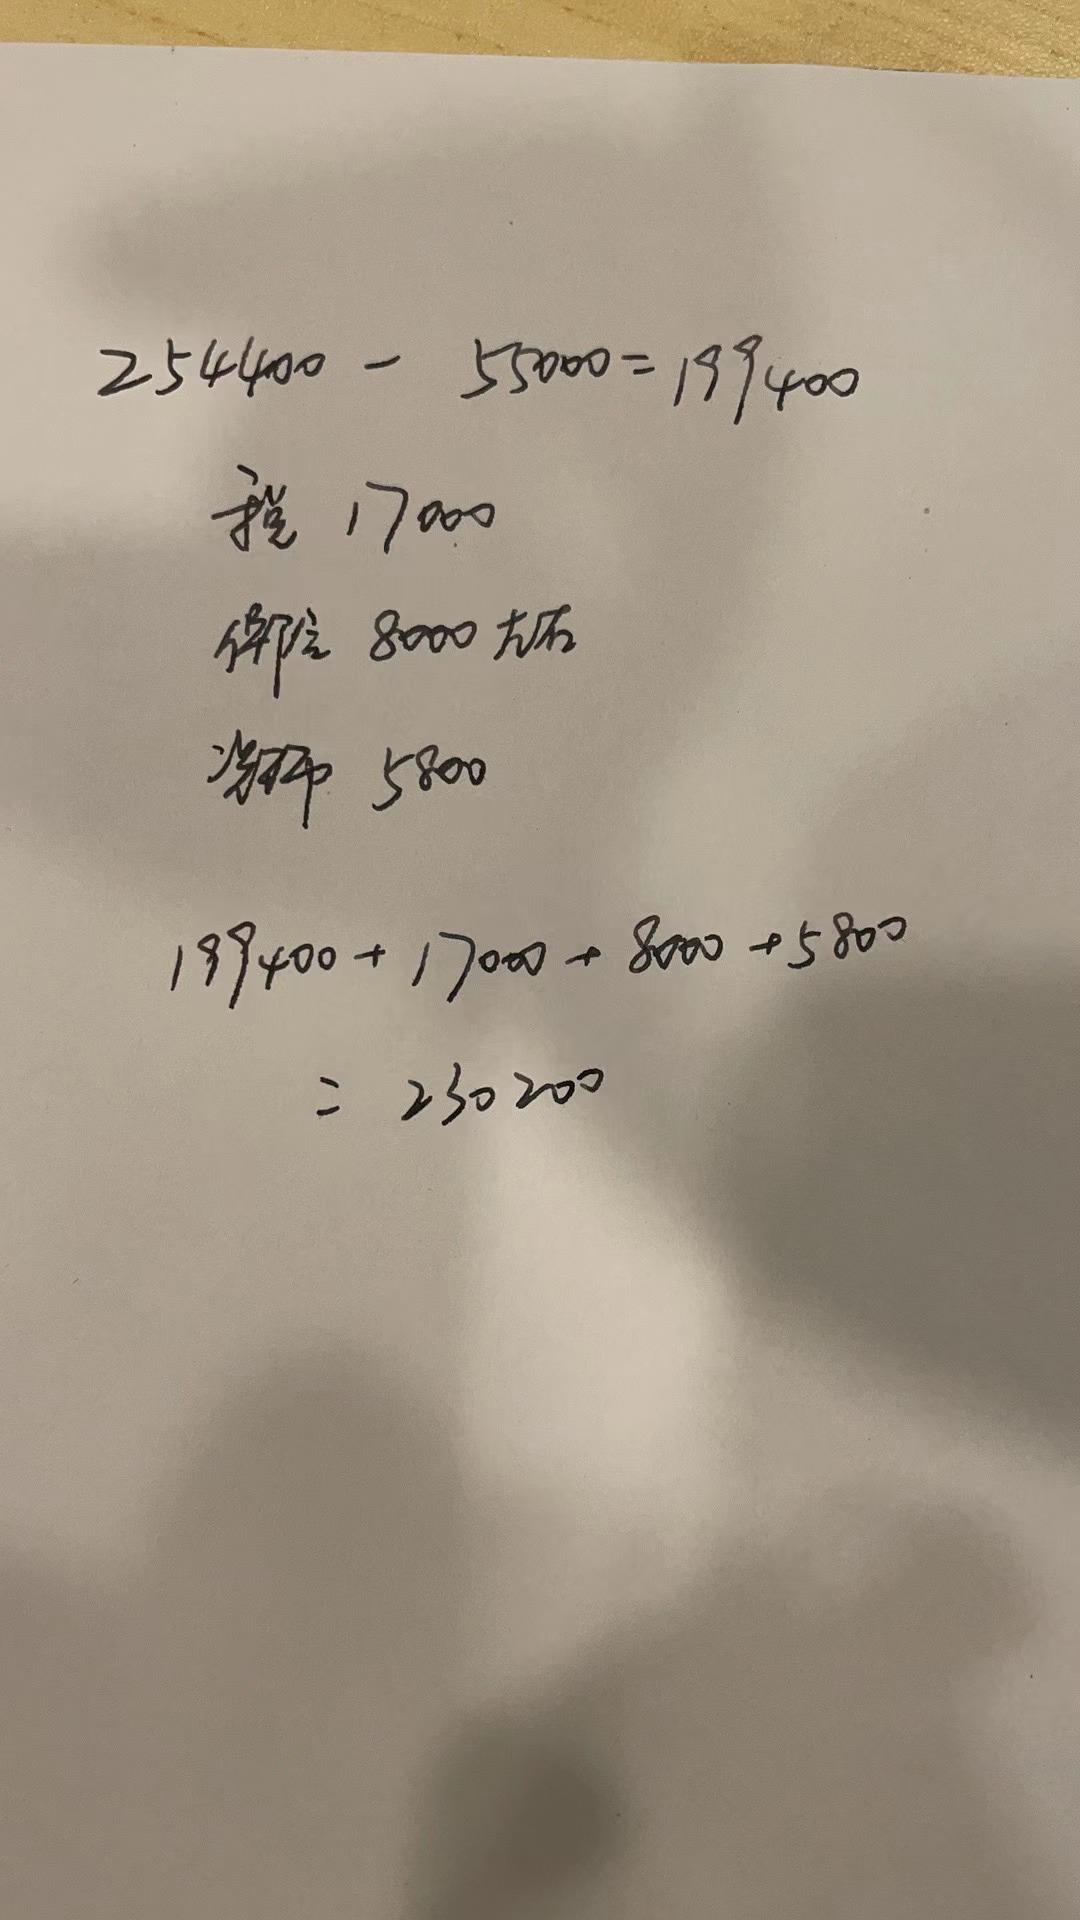 254400 - 55000 = 199400
税 17000
保险 8000 左右
当牌 5800
199400 + 17000 + 8000 + 5800
= 230200